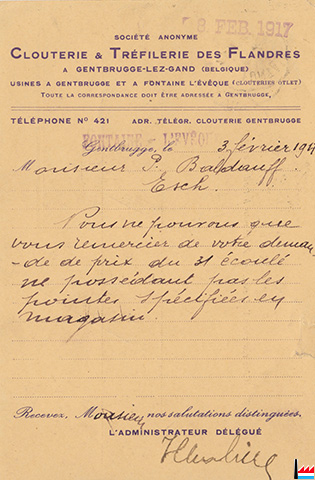 8 FEB. 1917
SOCIÉTÉ ANONYME
CLOUTERIE & TRÉFILERIE DES FLANDRES
A GENTBRUGGE-LEZ-GAND (BELGIQUE)
USINES A GENTBRUGGE ET A FONTAINE L'ÉVÊQUE (CLOUTERIES OTLET)
TOUTE LA CORRESPONDANCE DOIT ÊTRE ADRESSÉE A GENTBRUGGE.
TÉLÉPHONE No 421 ADR. TÉLÉGR. CLOUTERIE GENTBRUGGE
FONTAINE-L'EVÊQUE
Gentbrugge, le 3 février 1917
Monsieur P. Baldauff
Esch.
Nous ne pouvons que
vous remercier de votre deman-
de de prix du 31 écoulé
ne possédant pas les
pointes spécifiées en
magasin.
Recevez, Monsieur, nos salutations distinguées.
L'ADMINISTRATEUR DÉLÉGUÉ